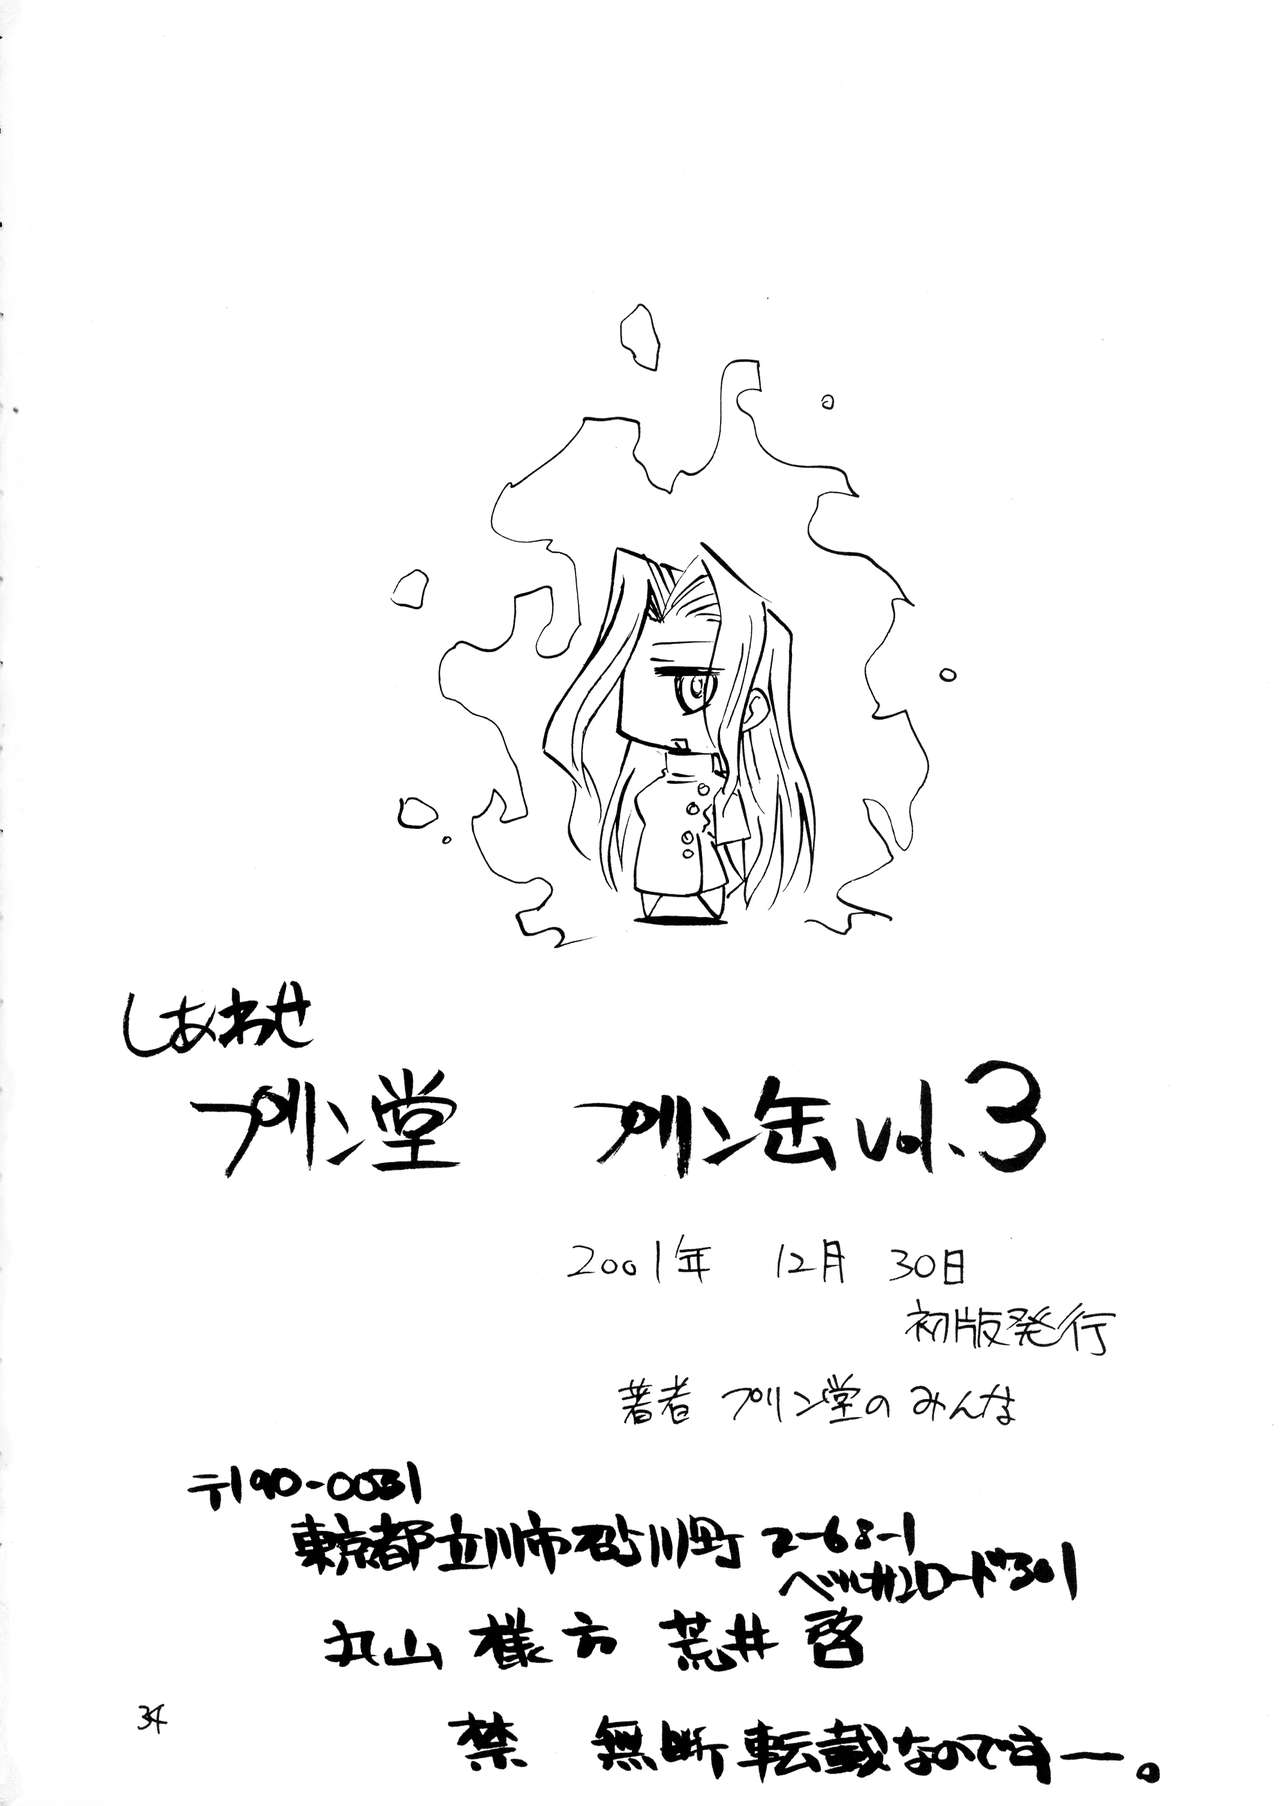 しあわせ
プリン堂 プリン缶 vol.3
2001年 12月 30日
初版発行
著者 プリン堂の みんな
〒190-0031
東京都立川市砂川町 2-68-1
ロード301
丸山 様方 荒井 啓
禁 無断転載なのですー。
34